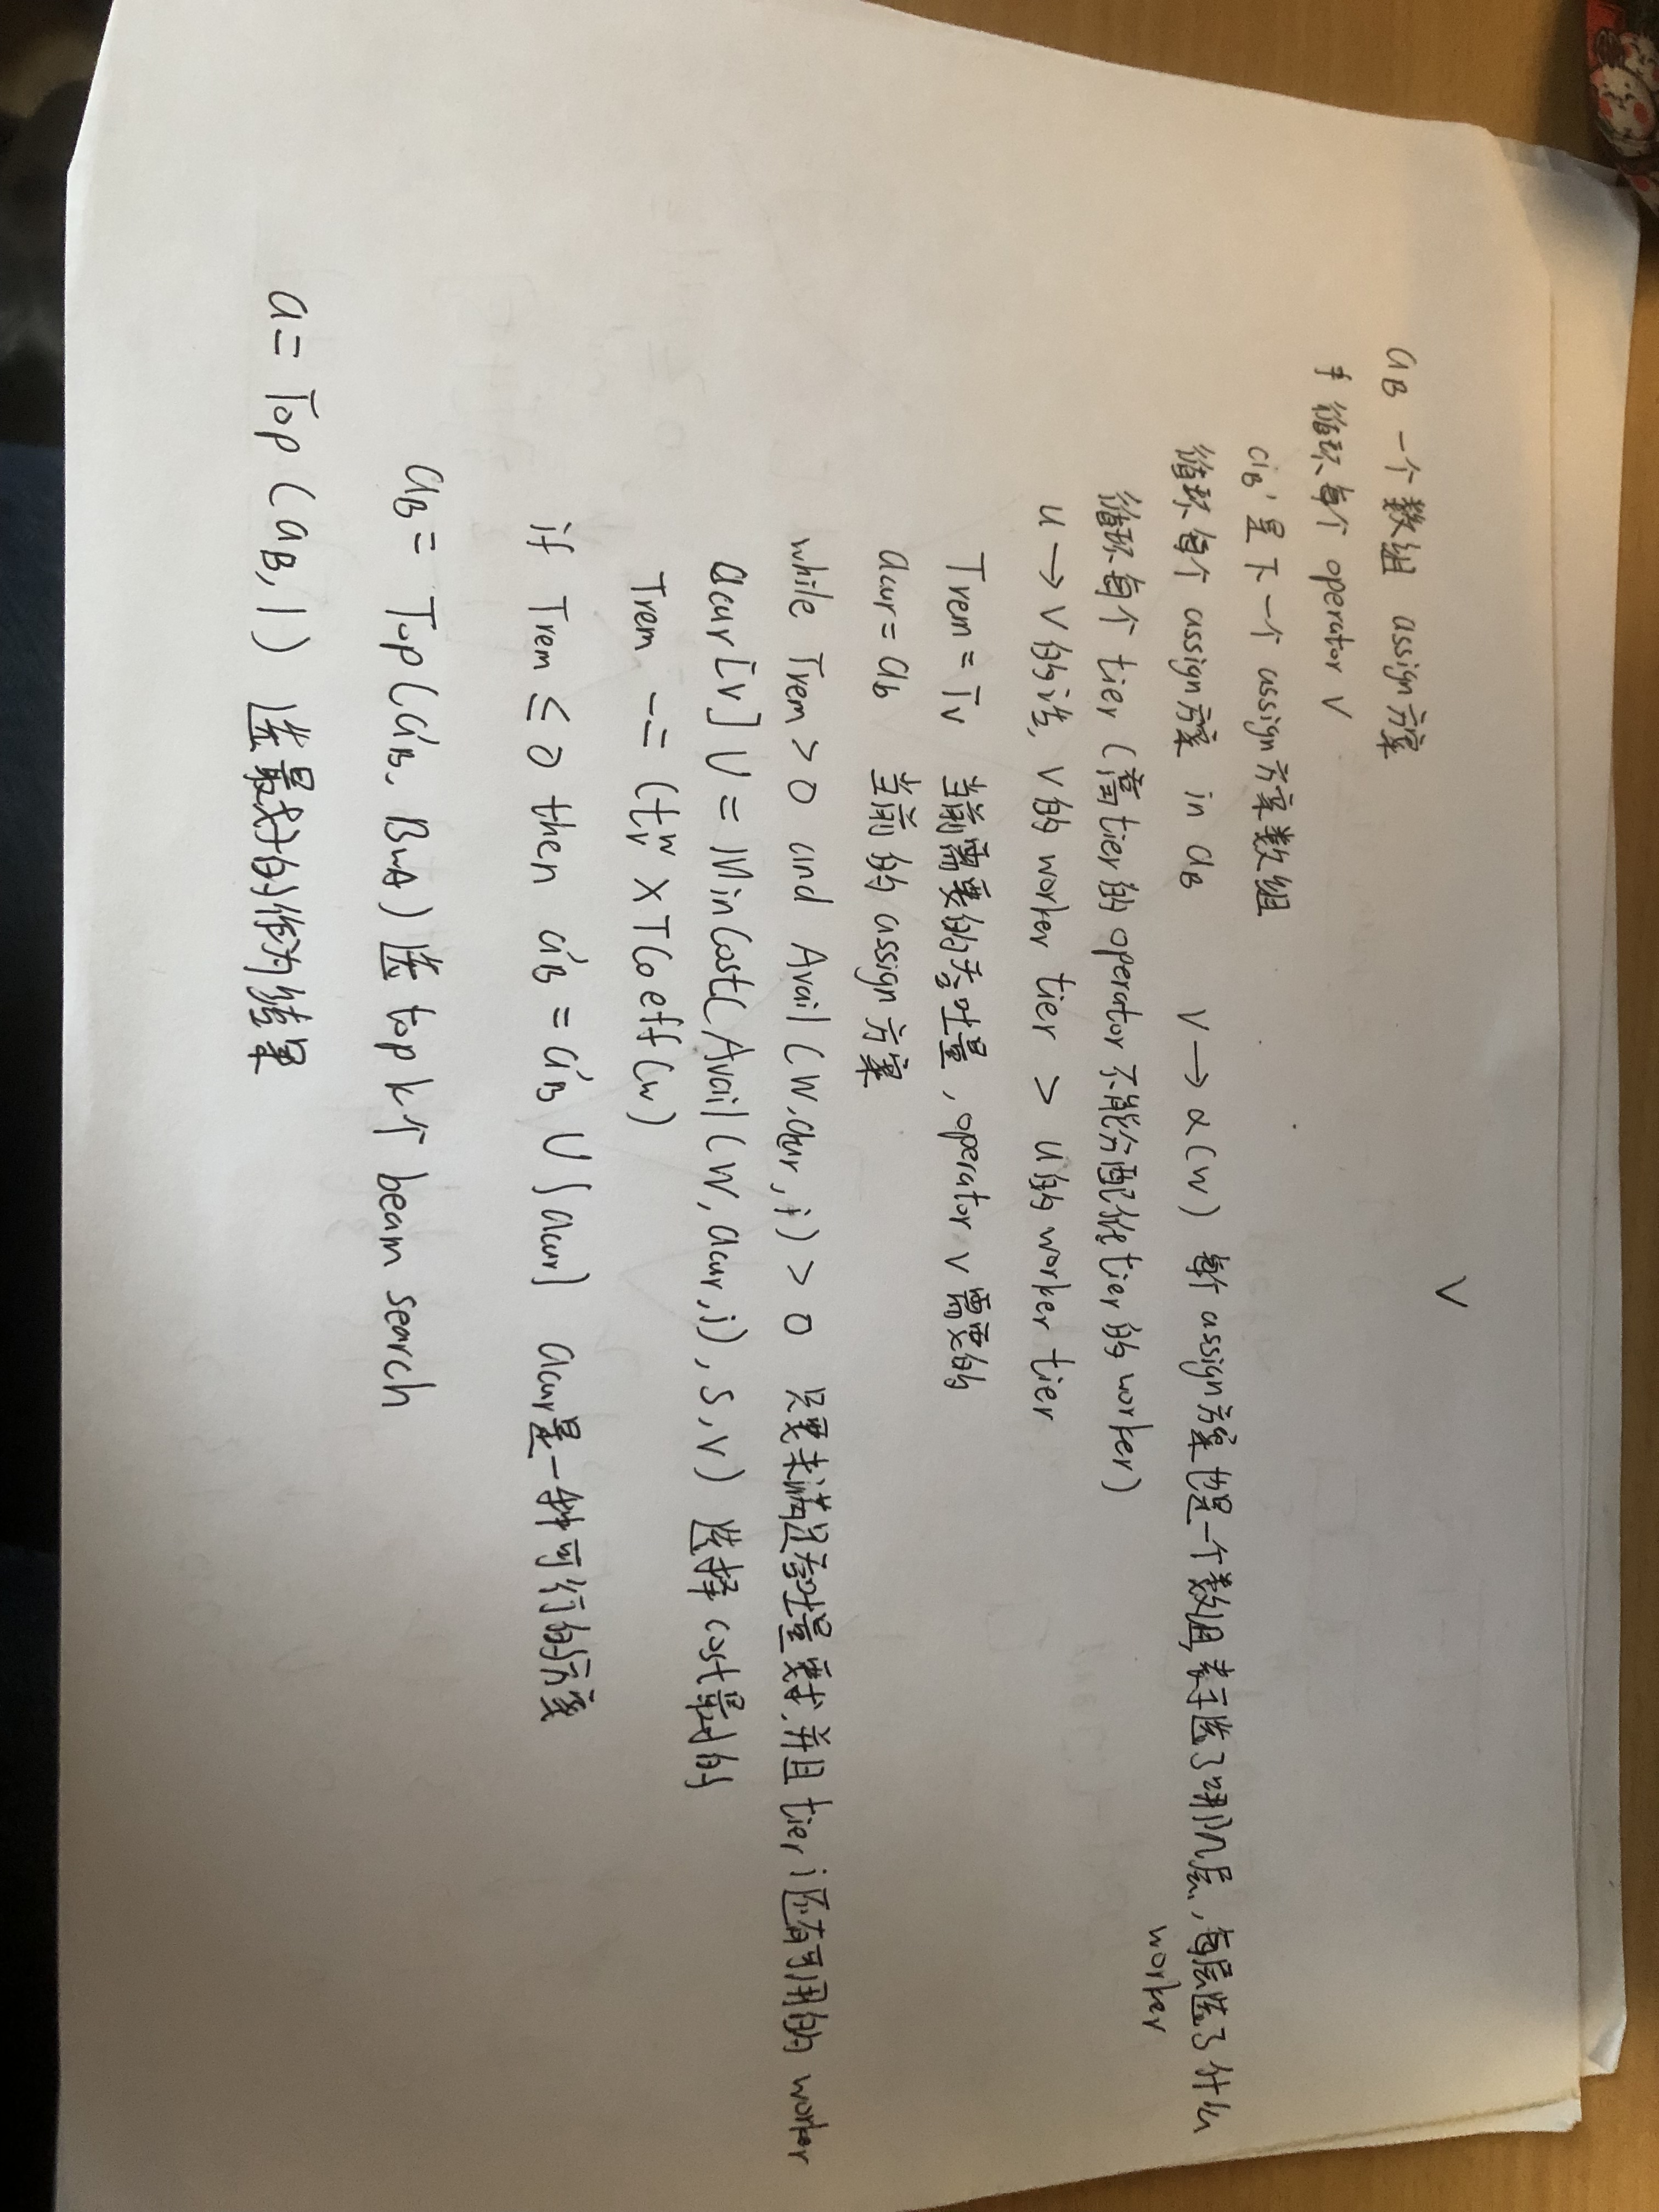 V
aB 一个数组 assign方案
for 循环每个 operator V
aB' 是下一个 assign方案数组
循环每个 assign方案 in aB V → α(w) 每个 assign方案也是一个数组,表示选了哪几层,每层选了什么
worker
循环每个 tier (高tier的operator 不能分配低tier的worker)
u → V 的话, V的 worker tier > u的 worker tier
Trem = Tv 当前需要的吞吐量, operator v 需要的
acur = ab 当前的 assign 方案
while Trem > 0 and Avail (W, acur, i) > 0 只要未满足吞吐量要求,并且 tier i 还有可用的 worker
acur[v] U = MinCost(Avail(W, acur, i), S, V) 选择 cost最小的
Trem -= (tvw × TCoeff(w)
if Trem ≤ 0 then a'B = a'B U {acur} acur是一种可行的方案
aB = Top(a'B, BWA) 选 top k个 beam search
a = Top (aB, 1) 选最好的作为结果